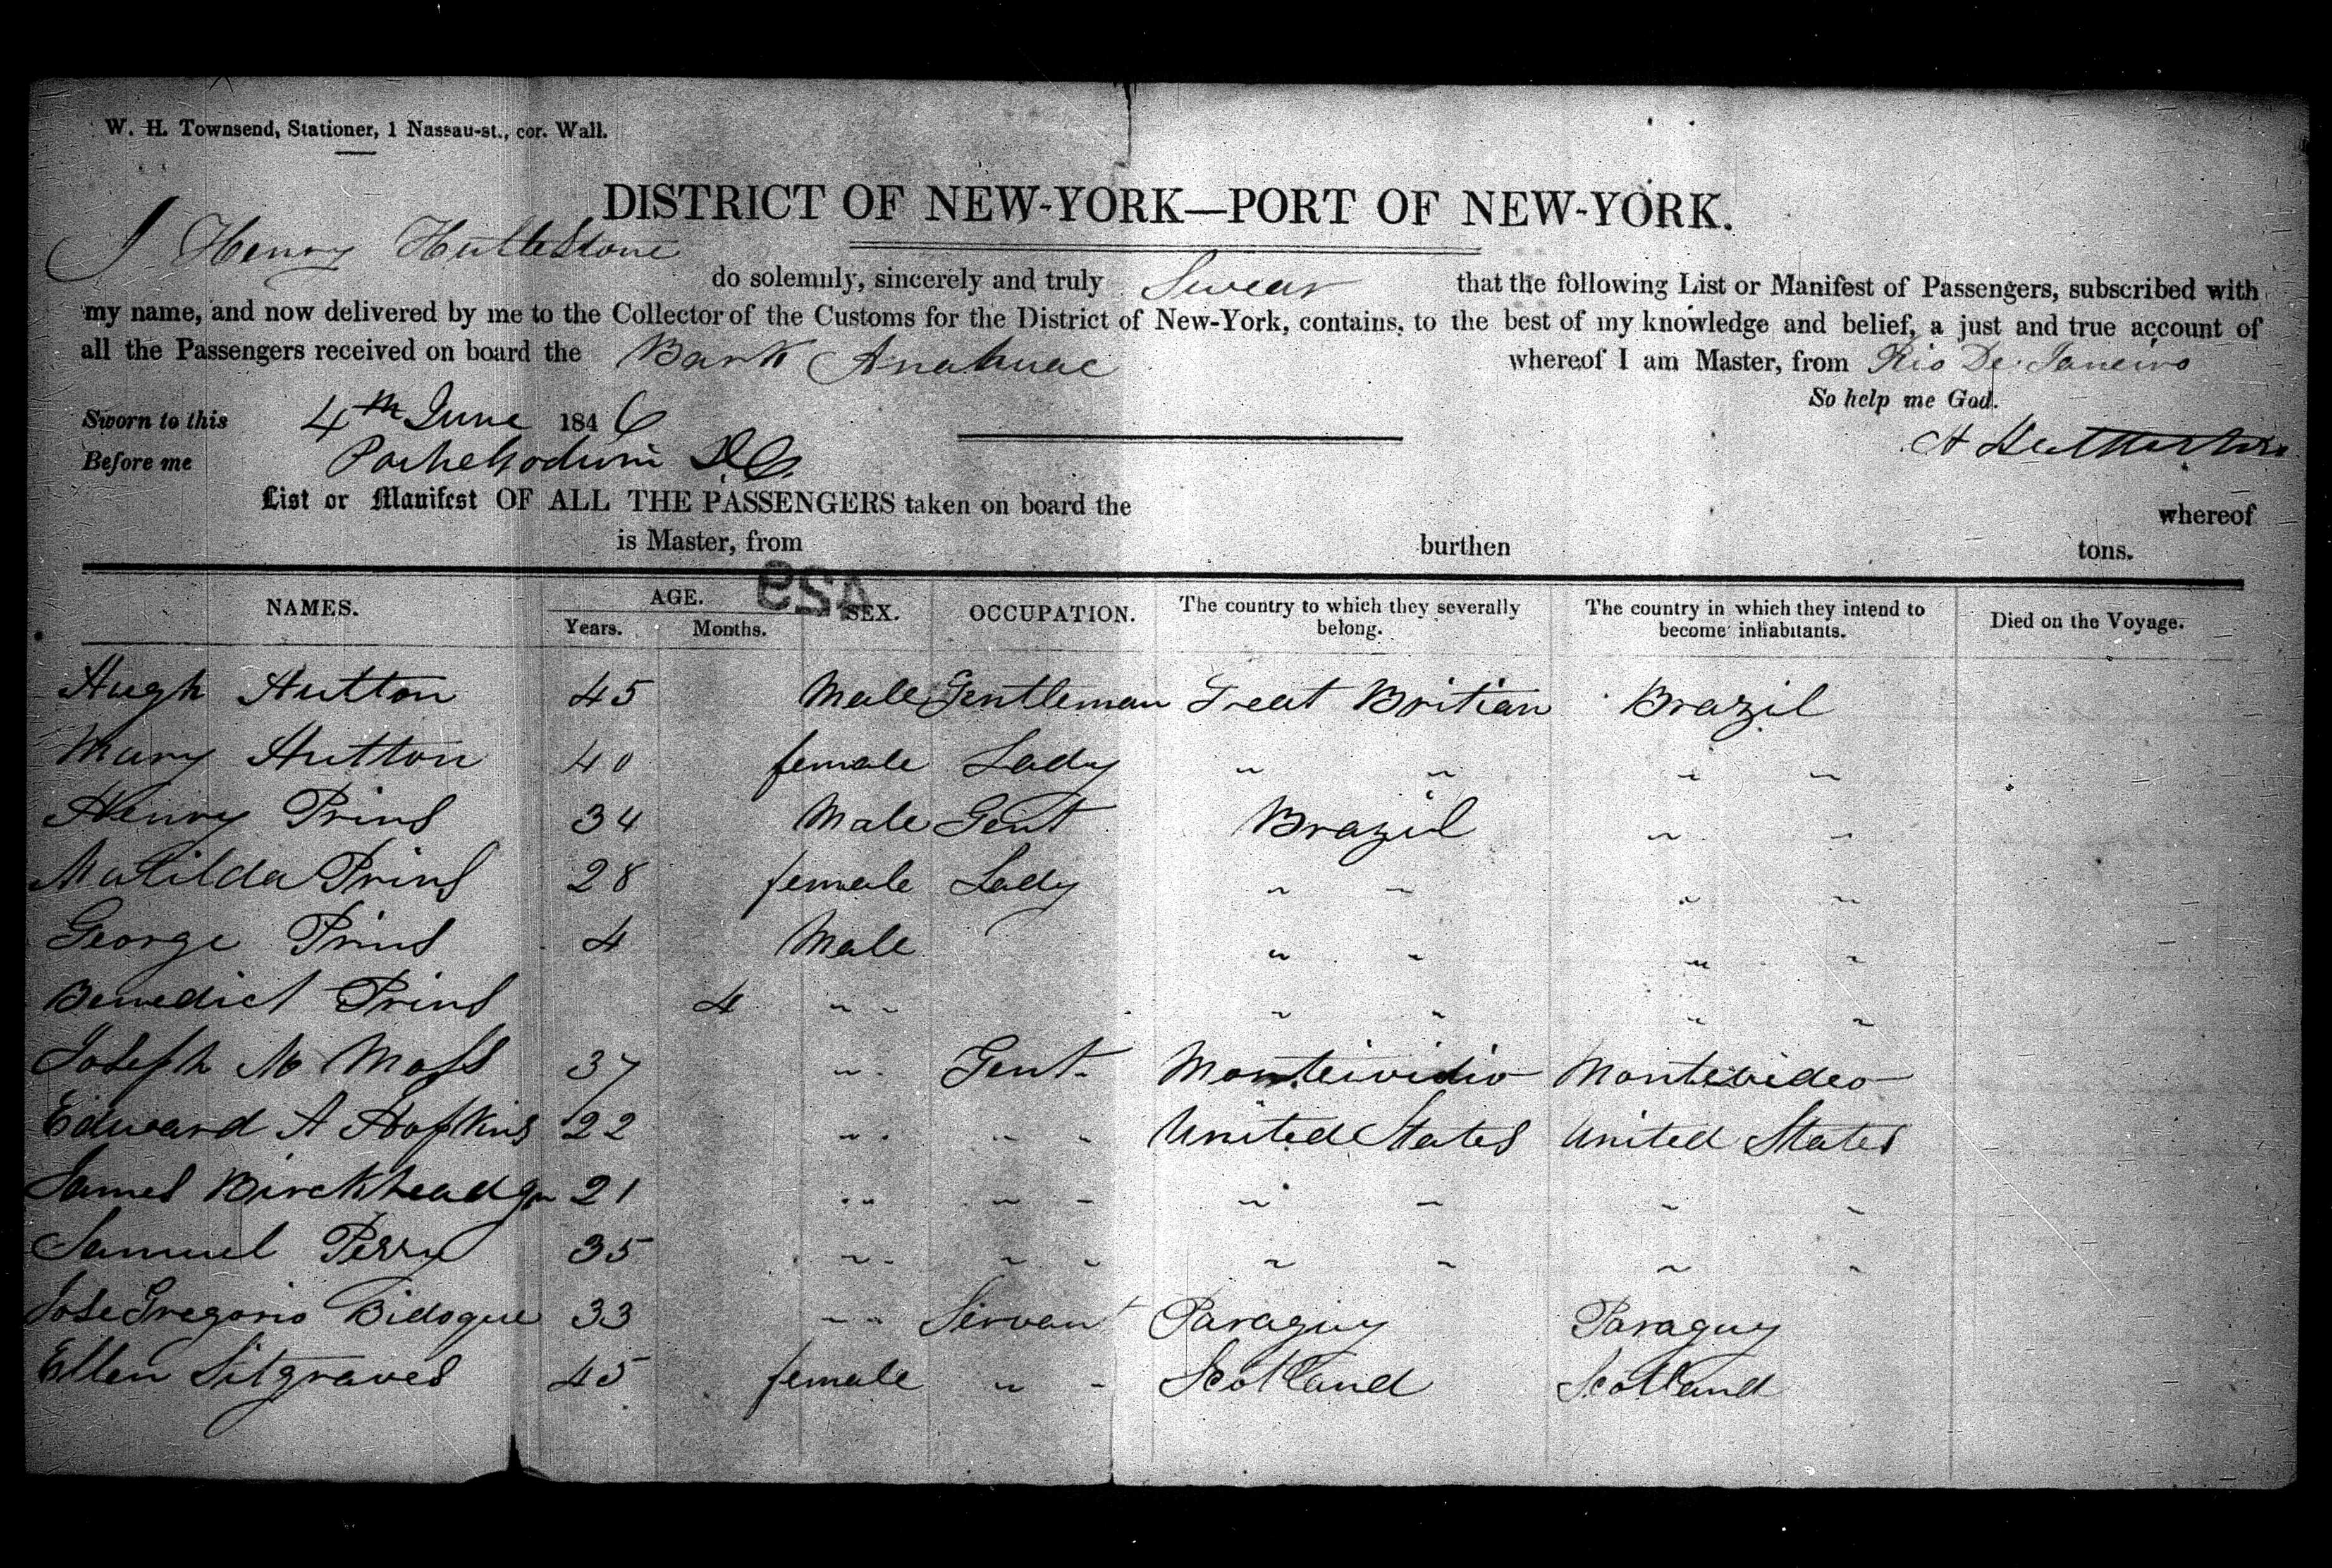 W. H. Townsend, Stationer, 1 Nassau-st., cor. Wall.
DISTRICT OF NEW-YORK—PORT OF NEW-YORK.
I Henry Huttlestone do solemnly, sincerely and truly Swear that the following List or Manifest of Passengers, subscribed with
my name, and now delivered by me to the Collector of the Customs for the District of New-York, contains, to the best of my knowledge and belief, a just and true account of
all the Passengers received on board the Bark Anahuac whereof I am Master, from Rio De Janeiro
So help me God.
Sworn to this 4th June 1846 H Huttlestone
Before me
List or Manifest OF ALL THE PASSENGERS taken on board the whereof
is Master, from burthen tons.
429
NAMES. AGE. SEX. OCCUPATION. The country to which they severally belong. The country in which they intend to become inhabitants. Died on the Voyage.
Years. Months.
Hugh Hutton 45 Male Gentleman Great Britian Brazil
Mary Hutton 40 female Lady " " " "
Henry Prins 34 Male Gent Brazil " "
Matilda Prins 28 female Lady " " " "
George Prins 4 Male " " " "
Benedict Prins 4 " " " " " "
Joseph M Moss 37 " Gent. Monteividio Montevideo
Edward A Hopkins 22 " " " United States United States
James Birckhead Jr 21 " " " " " " "
Samuel Perry 35 " " " " " " "
Jose Gregorio Bidogue 33 " " Servant Paraguy Paraguy
Ellen Sitgraves 45 female " " Scotland Scotland